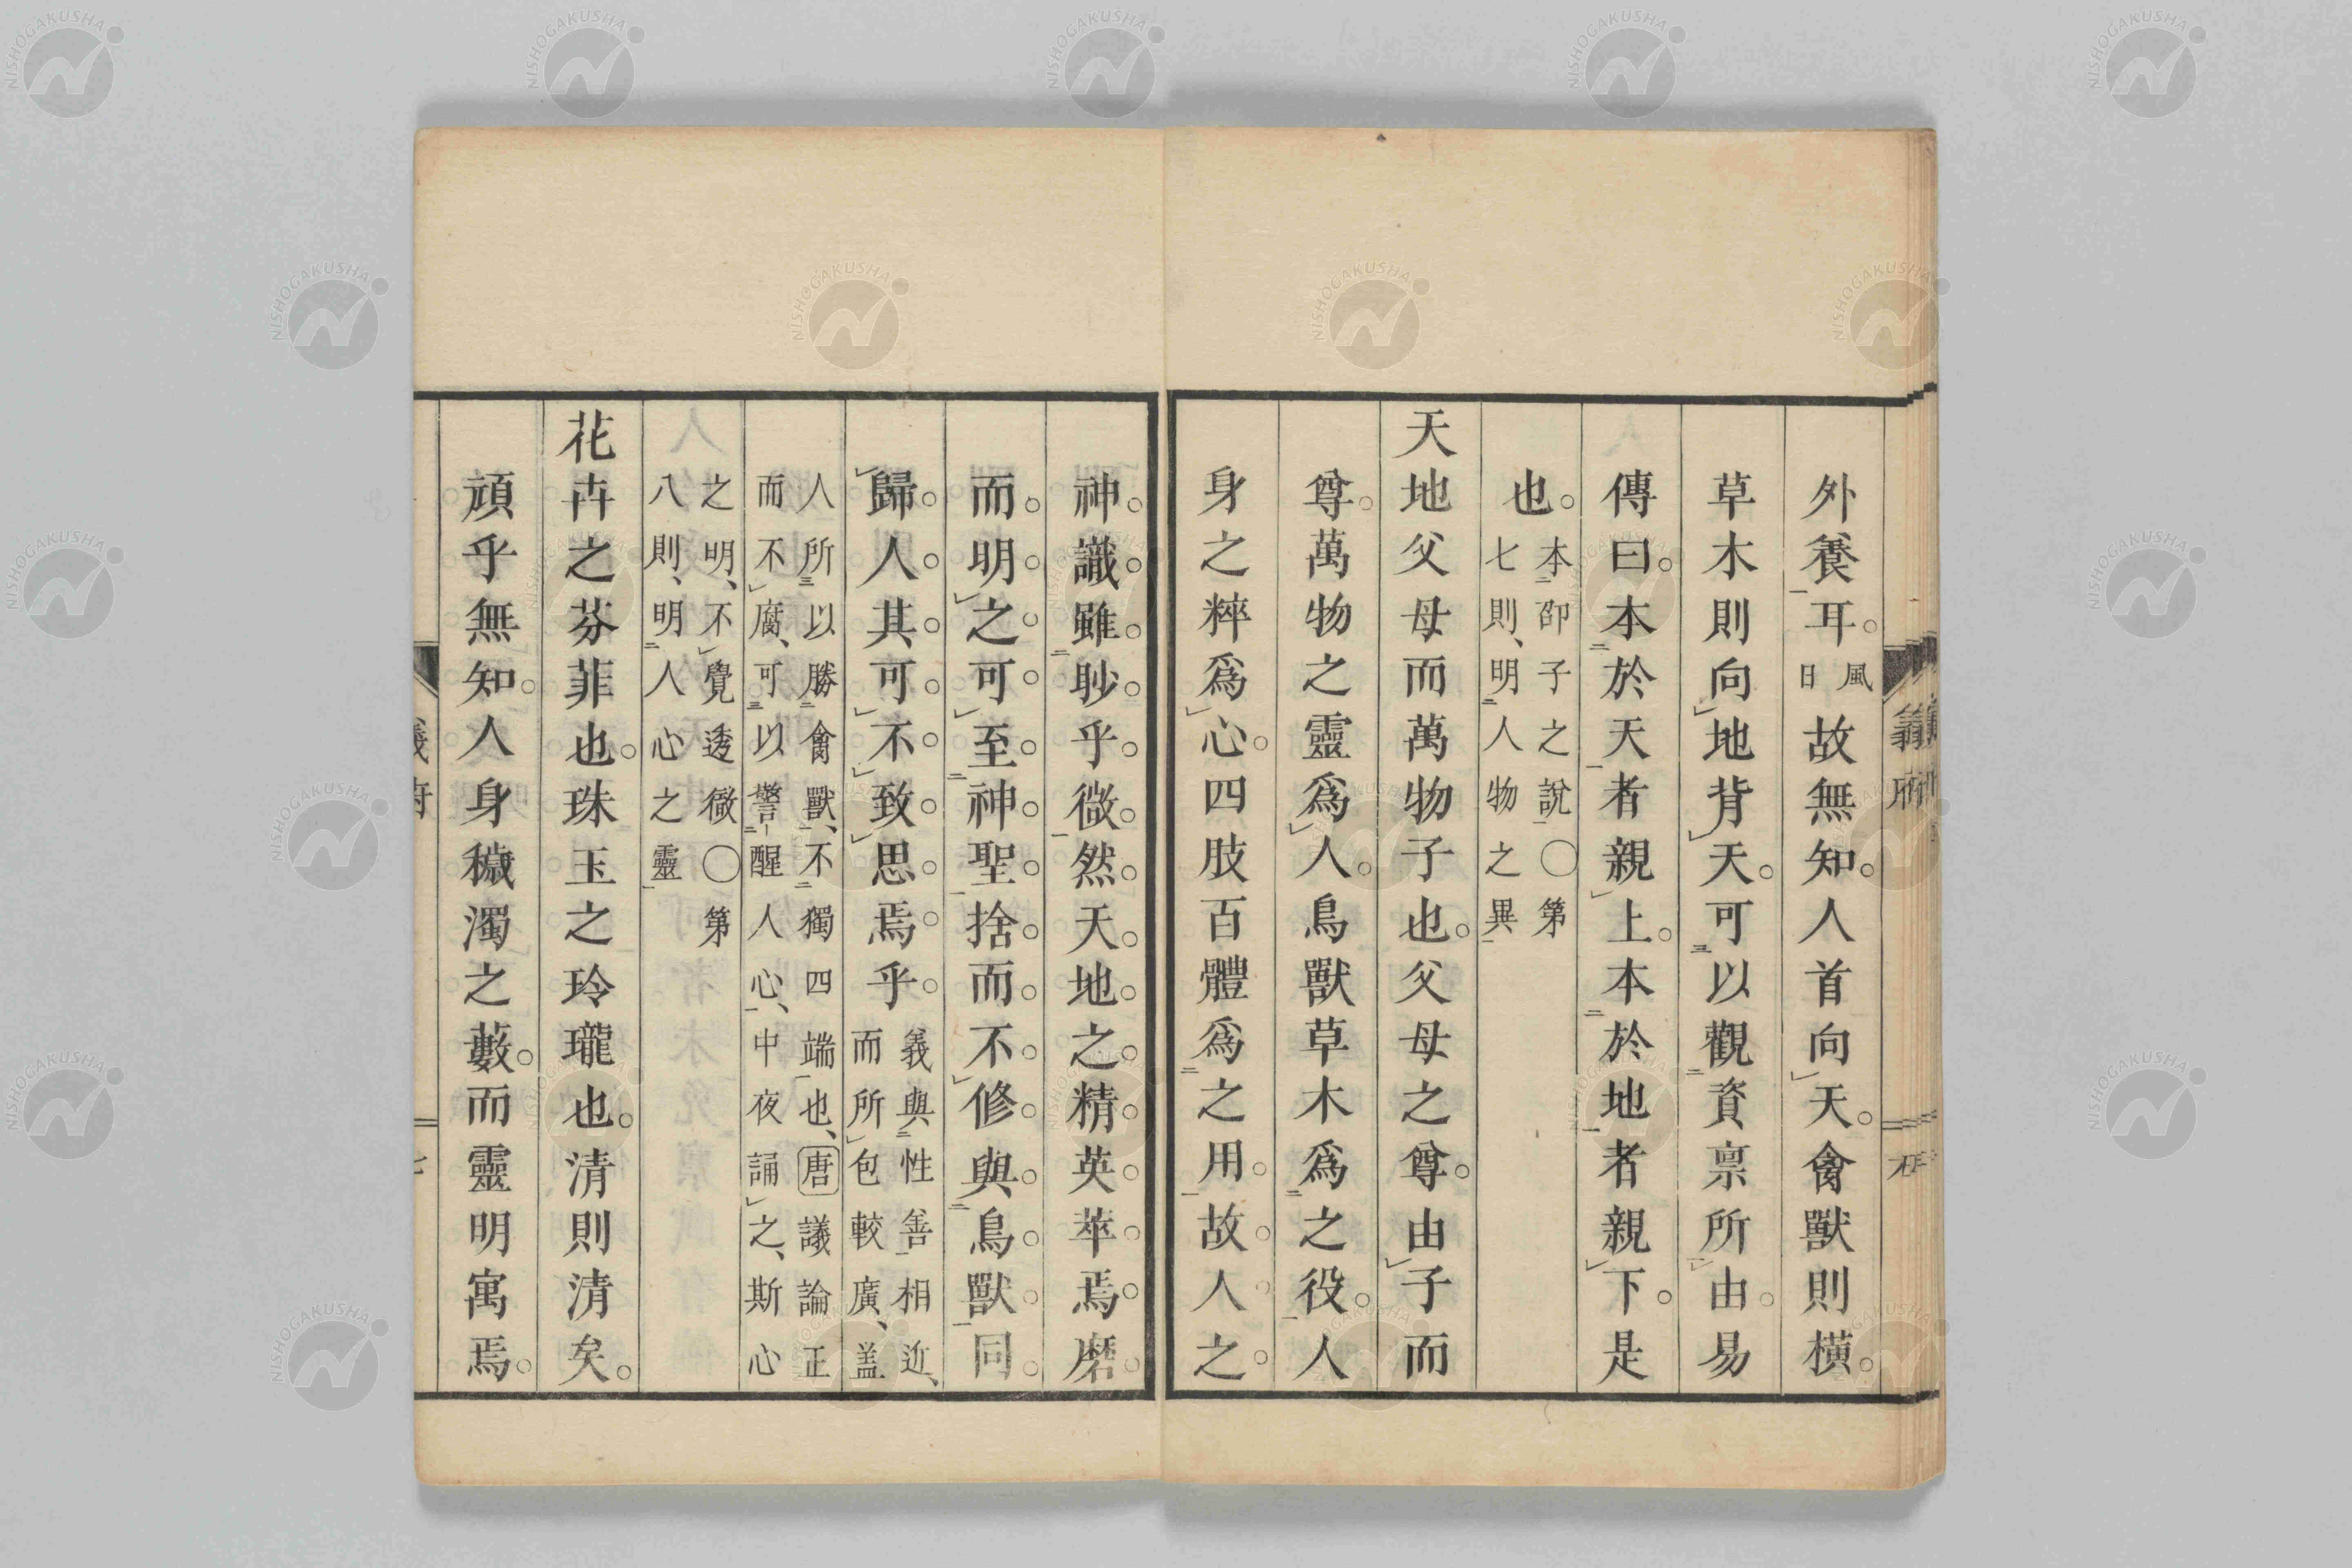 外養耳。風日故無知。人首向天。禽獸則橫。
草木則向地背天。可以觀資禀所由。易
傳曰。本於天者親上。本於地者親下。是
也。本邵子之說〇第
七則、明人物之異
天地父母而萬物子也。父母之尊。由子而
尊。萬物之靈爲人。鳥獸草木爲之役。人
身之粹爲心。四肢百體爲之用。故人之
神識雖眇乎微。然天地之精英萃焉。磨
而明之。可至神聖。捨而不修。與鳥獸同
歸。人其可不致思焉乎。義與性善相近、
而所包較廣、盖
人所以勝禽獸、不獨四端也、唐議論正
而不腐、可以警醒人心、中夜誦之、斯心
之明、不覺透徹〇第
八則、明人心之靈
花卉之芬菲也。珠玉之玲瓏也。清則清矣。
頑乎無知。人身穢濁之藪。而靈明寓焉。
NISHOGAKUSHA